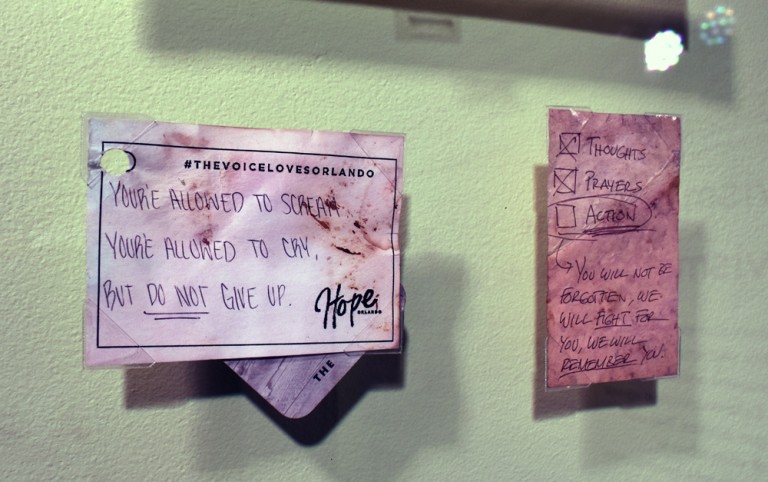 #THEVOICELOVESORLANDO
YOU'RE ALLOWED TO SCREAM.
YOU'RE ALLOWED TO CRY,
BUT DO NOT GIVE UP.
Hope
ORLANDO
THE
THOUGHTS
PRAYERS
ACTION
YOU WILL NOT BE
FORGOTTEN, WE
WILL FIGHT FOR
YOU, WE WILL
REMEMBER YOU.